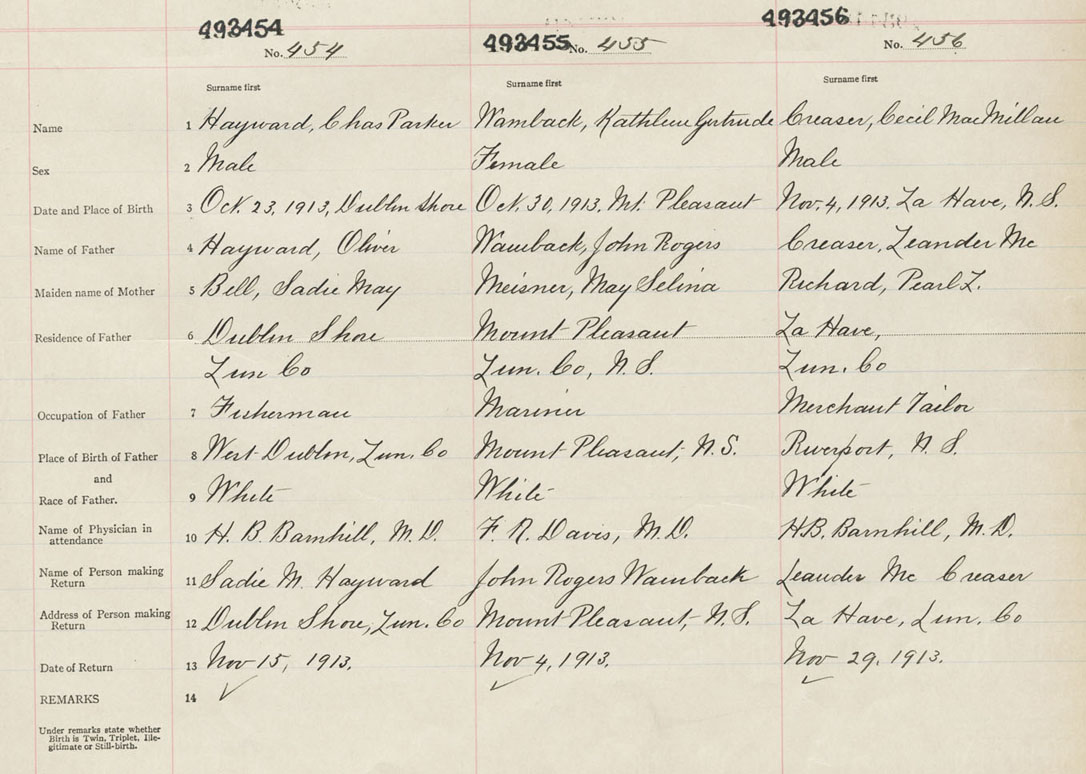 493454 493455 493456
No. 454 No. 455 No. 456
Surname first Surname first Surname first
Name 1 Hayward, Chas Parker Wamback, Kathlene Gertrude Creaser, Cecil MacMillan
Sex 2 Male Female Male
Date and Place of Birth 3 Oct. 23, 1913, Dublin Shore Oct. 30, 1913, Mt. Pleasant Nov. 4, 1913. La Have, N.S.
Name of Father 4 Hayward, Oliver Wamback, John Rogers Creaser, Leander Mc
Maiden name of Mother 5 Bell, Sadie May Meisner, May Selina Richard, Pearl L.
Residence of Father 6 Dublin Shore Mount Pleasant La Have,
Lun Co Lun. Co, N.S. Lun. Co
Occupation of Father 7 Fisherman Mariner Merchant Tailor
Place of Birth of Father 8 West Dublin, Lun. Co Mount Pleasant, N.S. Riverport, N.S.
and
Race of Father. 9 White White White
Name of Physician in
attendance 10 H. B. Barnhill, M.D. F. R. Davis, M.D. H.B. Barnhill, M.D.
Name of Person making
Return 11 Sadie M. Hayward John Rogers Wamback Leander Mc Creaser
Address of Person making
Return 12 Dublin Shore, Lun. Co Mount Pleasant, N.S. La Have, Lun. Co
Date of Return 13 Nov 15, 1913. Nov 4, 1913. Nov 29, 1913.
REMARKS 14
Under remarks state whether
Birth is Twin, Triplet, Ille-
gitimate or Still-birth.